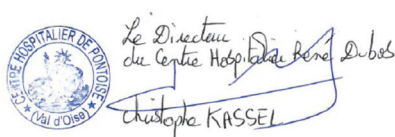 CENTRE HOSPITALIER DE PONTOISE
(Val d'Oise)
Le Directeur
du Centre Hospitalier René Dubos
Christophe KASSEL